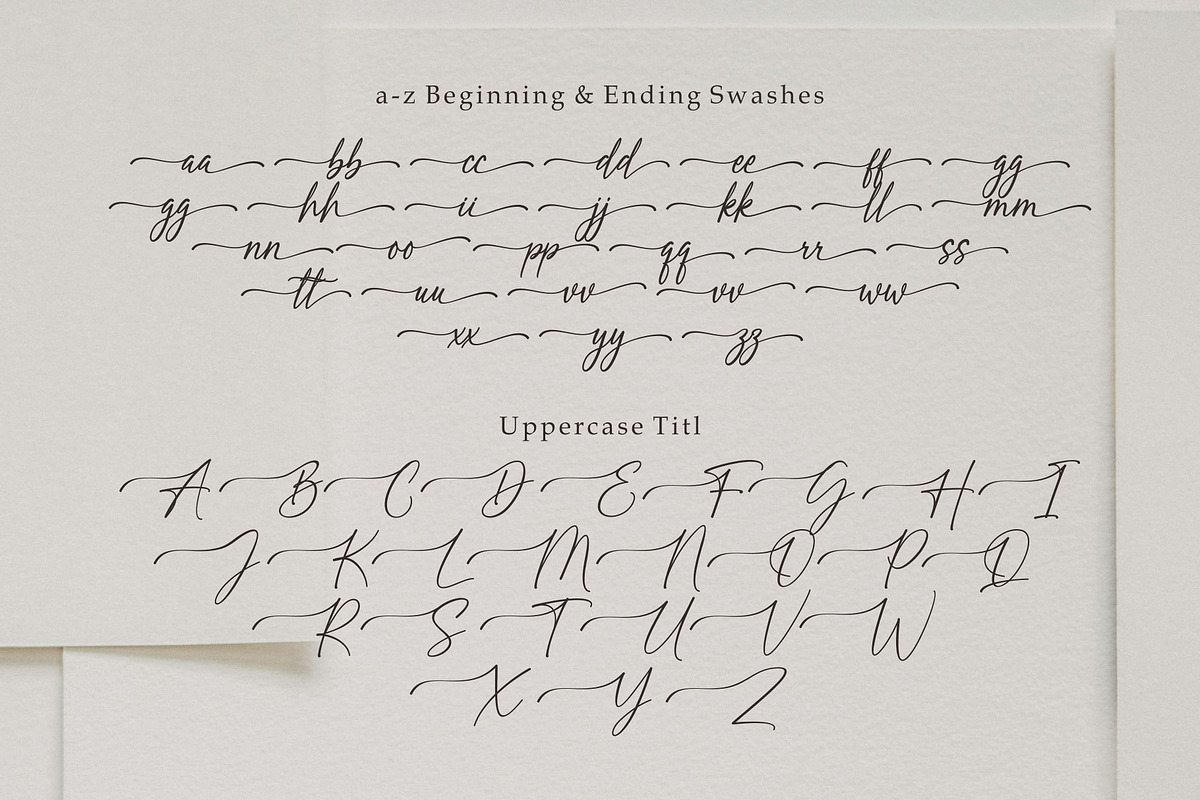 a-z Beginning & Ending Swashes
aa bb cc dd ee ff gg
gg hh ii jj kk ll mm
nn oo pp qq rr ss
tt uu vv vv ww
xx yy zz
Uppercase Titl
A B C D E F G H I
J K L M N O P Q
R S T U V W
X Y Z